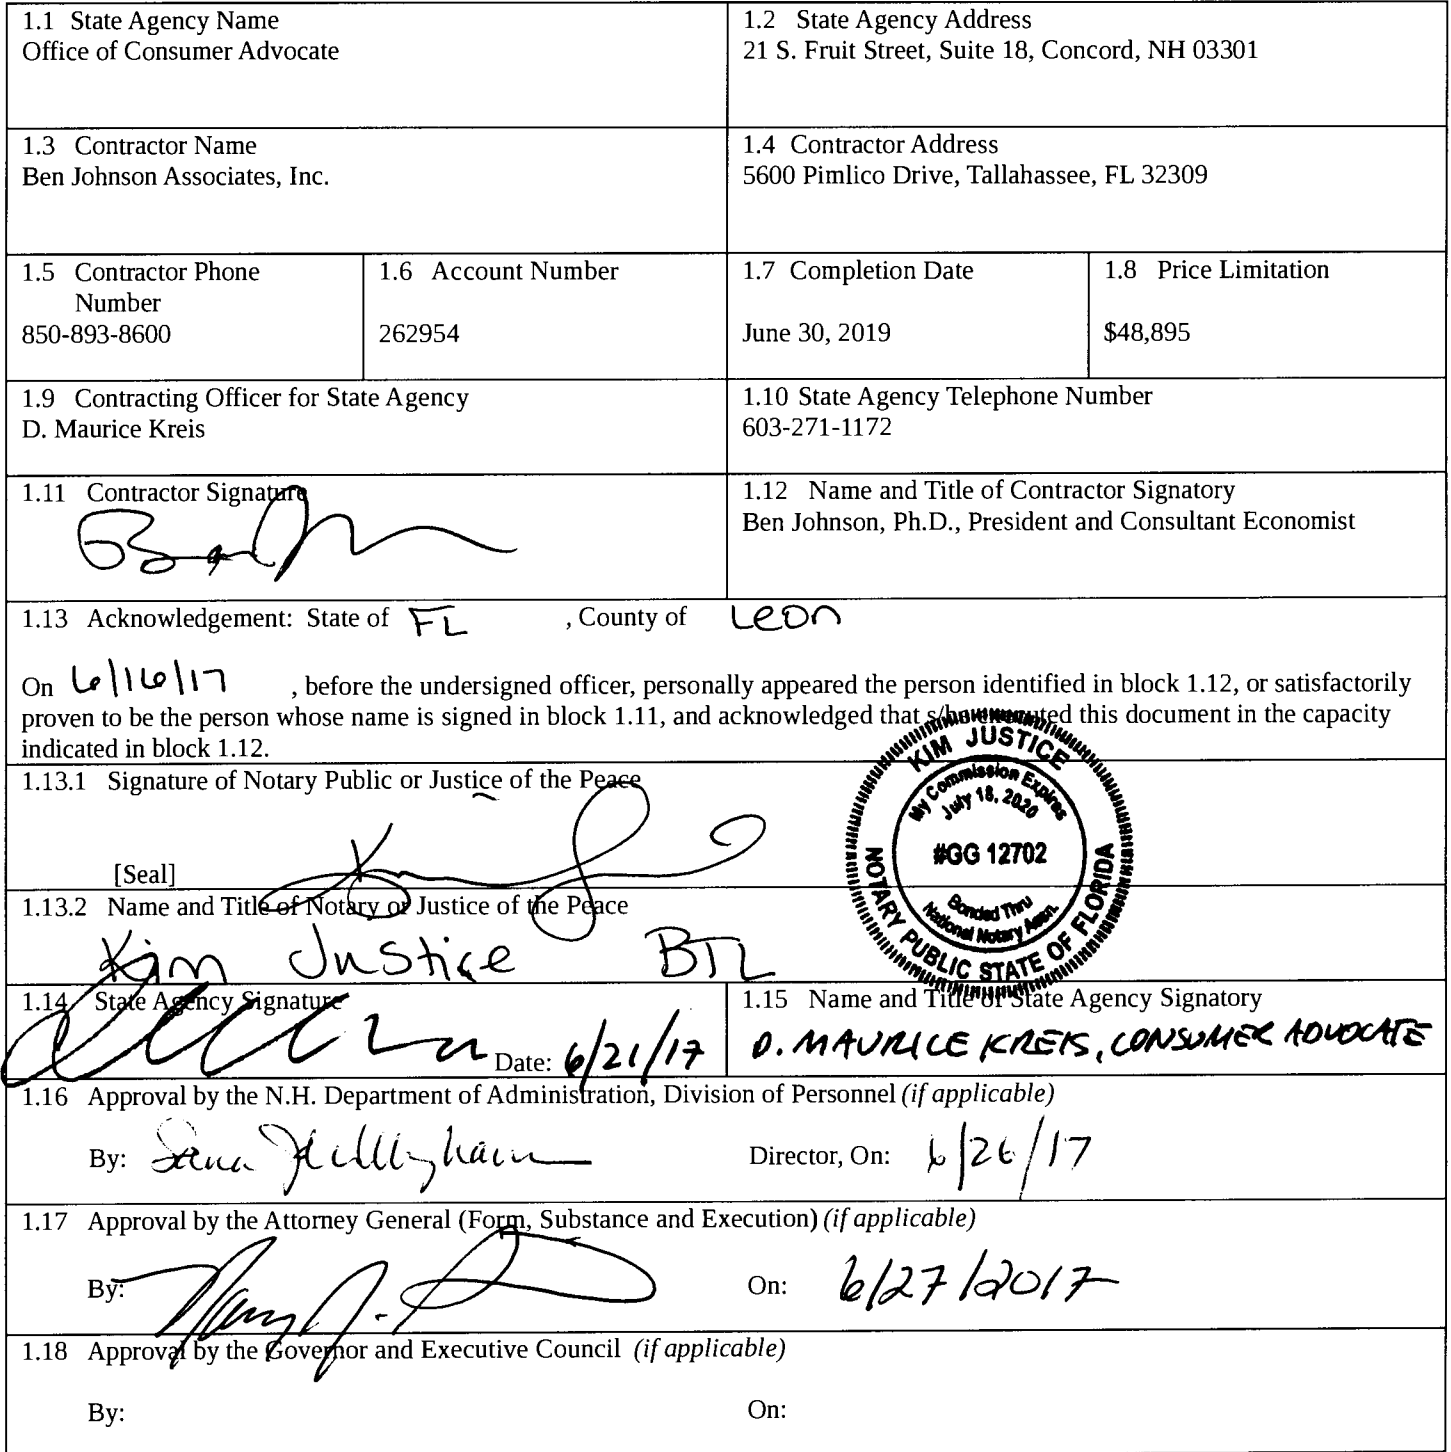 1.1 State Agency Name
Office of Consumer Advocate
1.2 State Agency Address
21 S. Fruit Street, Suite 18, Concord, NH 03301
1.3 Contractor Name
Ben Johnson Associates, Inc.
1.4 Contractor Address
5600 Pimlico Drive, Tallahassee, FL 32309
1.5 Contractor Phone
Number
850-893-8600
1.6 Account Number
262954
1.7 Completion Date
June 30, 2019
1.8 Price Limitation
$48,895
1.9 Contracting Officer for State Agency
D. Maurice Kreis
1.10 State Agency Telephone Number
603-271-1172
1.11 Contractor Signature
1.12 Name and Title of Contractor Signatory
Ben Johnson, Ph.D., President and Consultant Economist
1.13 Acknowledgement: State of FL , County of Leon
On 6/16/17 , before the undersigned officer, personally appeared the person identified in block 1.12, or satisfactorily
proven to be the person whose name is signed in block 1.11, and acknowledged that s/he executed this document in the capacity
indicated in block 1.12.
1.13.1 Signature of Notary Public or Justice of the Peace
[Seal]
KIM JUSTICE
My Commission Expires
July 18, 2020
#GG 12702
Bonded Thru
National Notary Assn.
NOTARY PUBLIC STATE OF FLORIDA
1.13.2 Name and Title of Notary or Justice of the Peace
Kim Justice BTL
1.14 State Agency Signature
Date: 6/21/17
1.15 Name and Title of State Agency Signatory
D. MAURICE KREIS, CONSUMER ADVOCATE
1.16 Approval by the N.H. Department of Administration, Division of Personnel (if applicable)
By:
Director, On: 6/26/17
1.17 Approval by the Attorney General (Form, Substance and Execution) (if applicable)
By:
On: 6/27/2017
1.18 Approval by the Governor and Executive Council (if applicable)
By:
On: